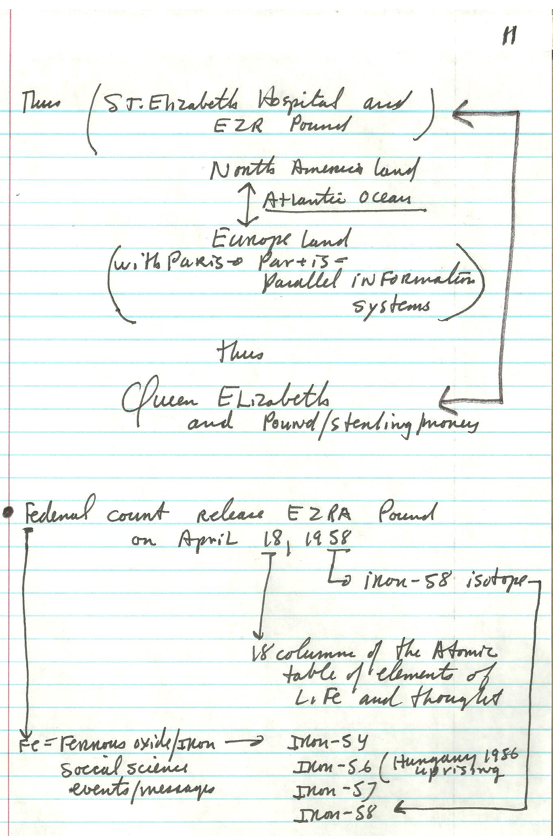 11
Thus (ST. Elizabeth Hospital and
EZR Pound)
North America land
Atlantic Ocean
Europe land
(with Paris → Par+is =
Parallel inFormation
systems)
thus
Queen ELizabeth
and Pound/sterling/money
• Federal court release EZRA Pound
on ApriL 18, 1958
→ iron-58 isotope
18 columns of the Atomic
table of elements of
LiFe and thought
Fe = Ferrous oxide/iron → Iron-54
Social science Iron-56 (Hungary 1956
events/messages uprising
Iron-57
Iron-58